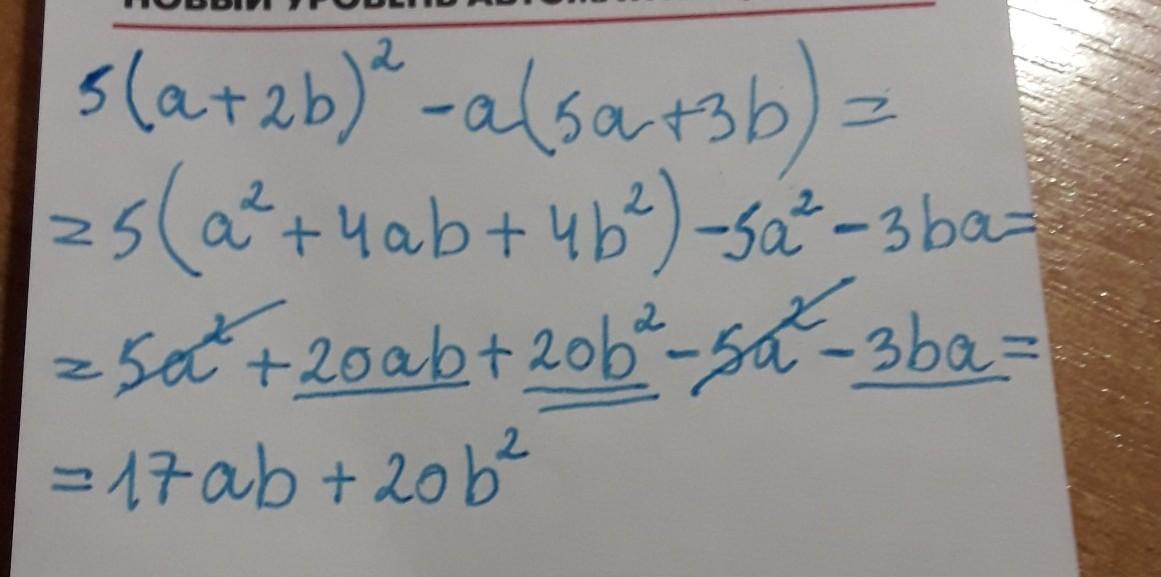 НОВЫЙ УРОВЕНЬ
5(a+2b)² -a(5a+3b) =
=5(a²+4ab+4b²)-5a²-3ba=
=5a²+20ab+20b²-5a²-3ba=
=17ab+20b²